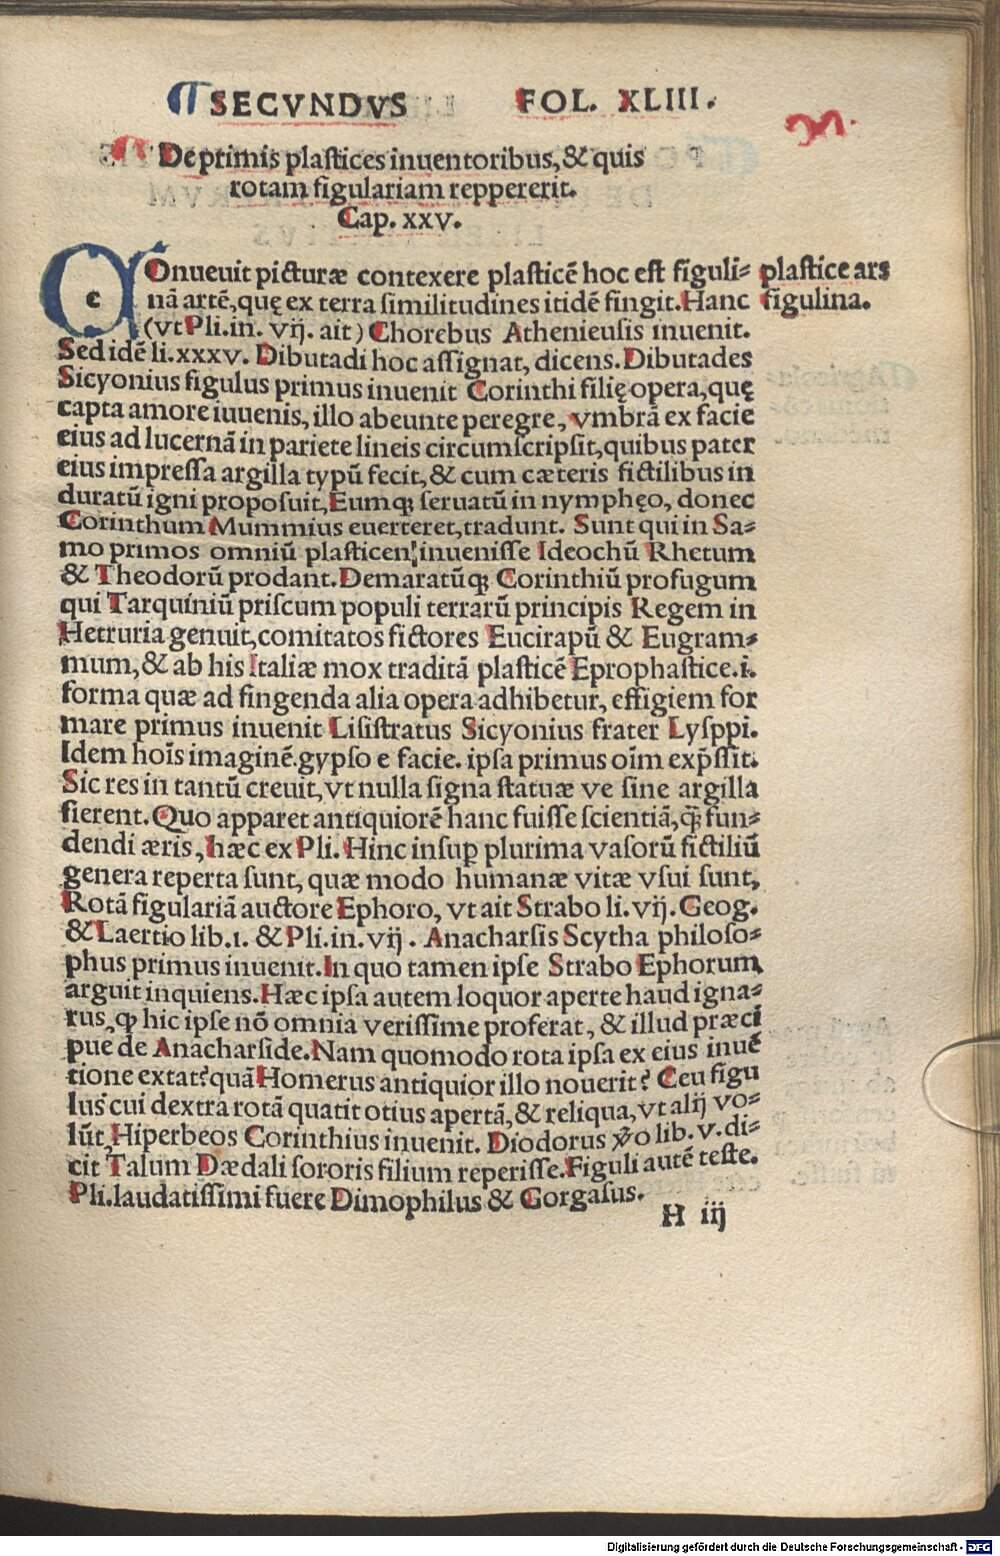 SECVNDVS FOL. XLIII.
De primis plastices inuentoribus, & quis
rotam figulariam reppererit.
Cap. xxv.
COnueuit picturæ contexere plasticē hoc est figuli=
nā artē, quę ex terra similitudines itidē fingit. Hanc
(vt Pli. in. vij. ait) Chorebus Athenieusis inuenit.
Sed idē li. xxxv. Dibutadi hoc assignat, dicens. Dibutades
Sicyonius figulus primus inuenit Corinthi filię opera, quę
capta amore iuuenis, illo abeunte peregre, vmbrā ex facie
eius ad lucernā in pariete lineis circumscripsit, quibus pater
eius impressa argilla typū fecit, & cum cæteris fictilibus in
duratū igni proposuit, Eumqꝫ seruatū in nymphęo, donec
Corinthum Mummius euerteret, tradunt. Sunt qui in Sa=
mo primos omniū plasticen inuenisse Ideochū Rhetum
& Theodorū prodant. Demaratūqꝫ Corinthiū profugum
qui Tarquiniū priscum populi terrarū principis Regem in
Hetruria genuit, comitatos fictores Eucirapū & Eugram=
mum, & ab his Italiæ mox traditā plasticē Eprophastice. i.
forma quæ ad fingenda alia opera adhibetur, effigiem for
mare primus inuenit Lisistratus Sicyonius frater Lysppi.
Idem hoīs imaginē. gypso e facie. ipsa primus oīm exp̄ssit.
Sic res in tantū creuit, vt nulla signa statuæ ve sine argilla
fierent. Quo apparet antiquiorē hanc fuisse scientiā, q̈ꝫ fun=
dendi æris, hæc ex Pli. Hinc insuꝑ plurima vasorū fictiliū
genera reperta sunt, quæ modo humanæ vitæ vsui sunt,
Rotā figulariā auctore Ephoro, vt ait Strabo li. vij. Geog.
& Laertio lib. 1. & Pli. in. vij. Anacharsis Scytha philoso=
phus primus inuenit. In quo tamen ipse Strabo Ephorum
arguit inquiens. Hæc ipsa autem loquor aperte haud igna=
rus, ꝙ hic ipse nō omnia verissime proferat, & illud præci
pue de Anacharside. Nam quomodo rota ipsa ex eius inuē
tione extat? quā Homerus antiquior illo nouerit? Ceu figu
lus cui dextra rotā quatit otius apertā, & reliqua, vt alij vo=
lūt, Hiperbeos Corinthius inuenit. Diodorus v̊o lib. v. di=
cit Talum Dædali sororis filium reperisse. Figuli autē teste.
Pli. laudatissimi fuere Dimophilus & Gorgasus.
H iij
plastice ars
figulina.
Digitalisierung gefördert durch die Deutsche Forschungsgemeinschaft - DFG